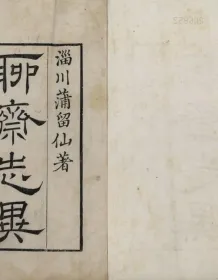 淄川蒲留仙著
聊齋志異